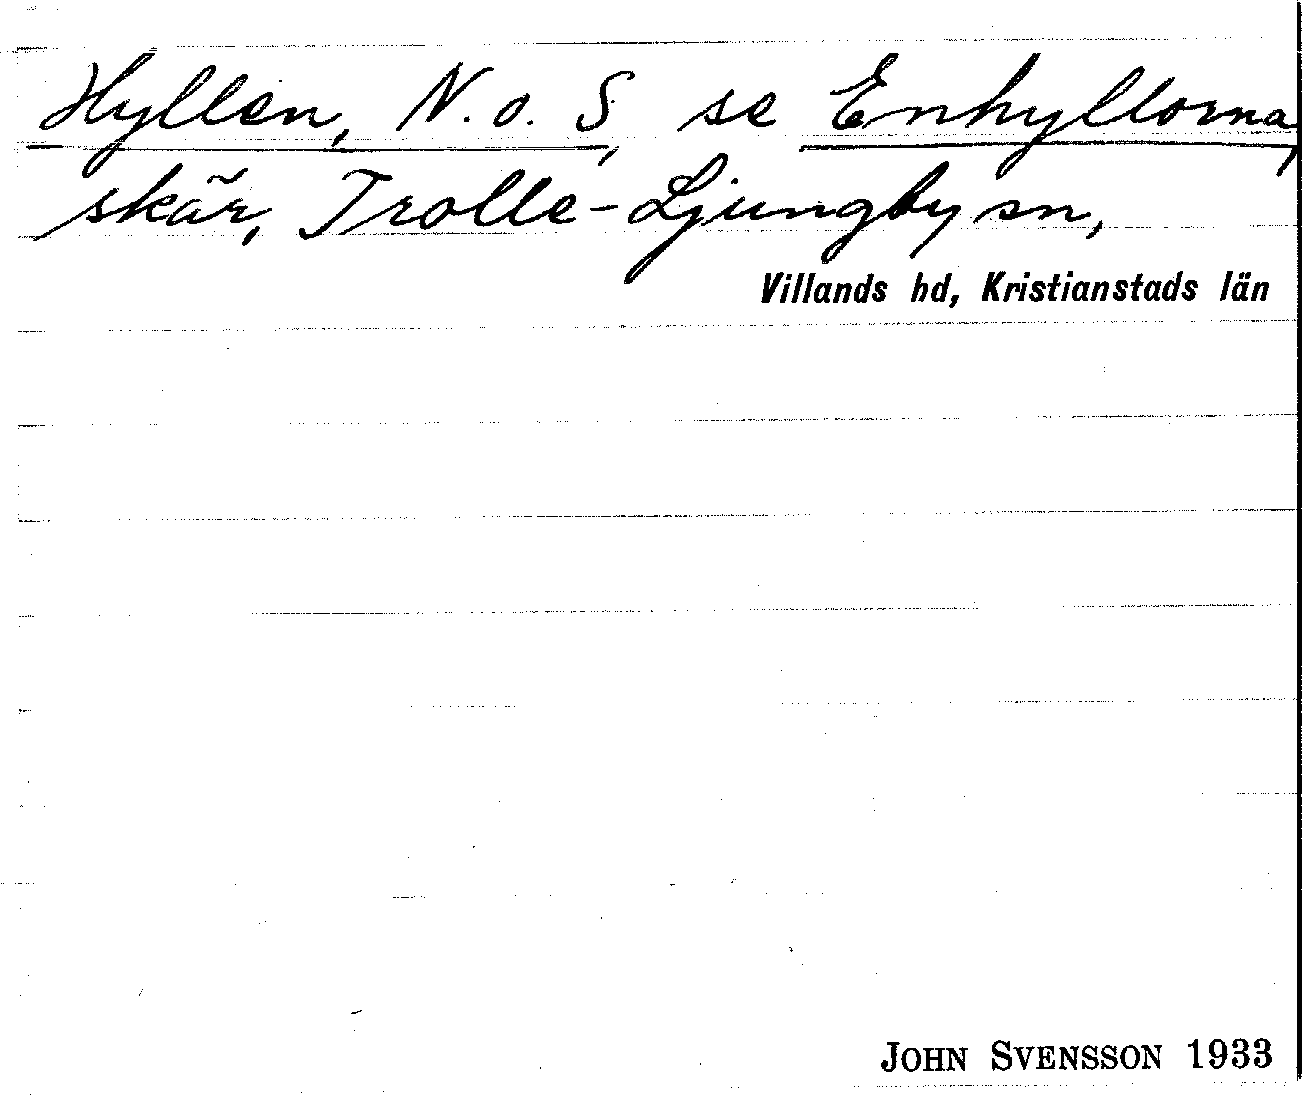 Hyllen, N. o. S, se Enhyllorna,
skär, Trolle-Ljungby sn,
Villands hd, Kristianstads län
JOHN SVENSSON 1933